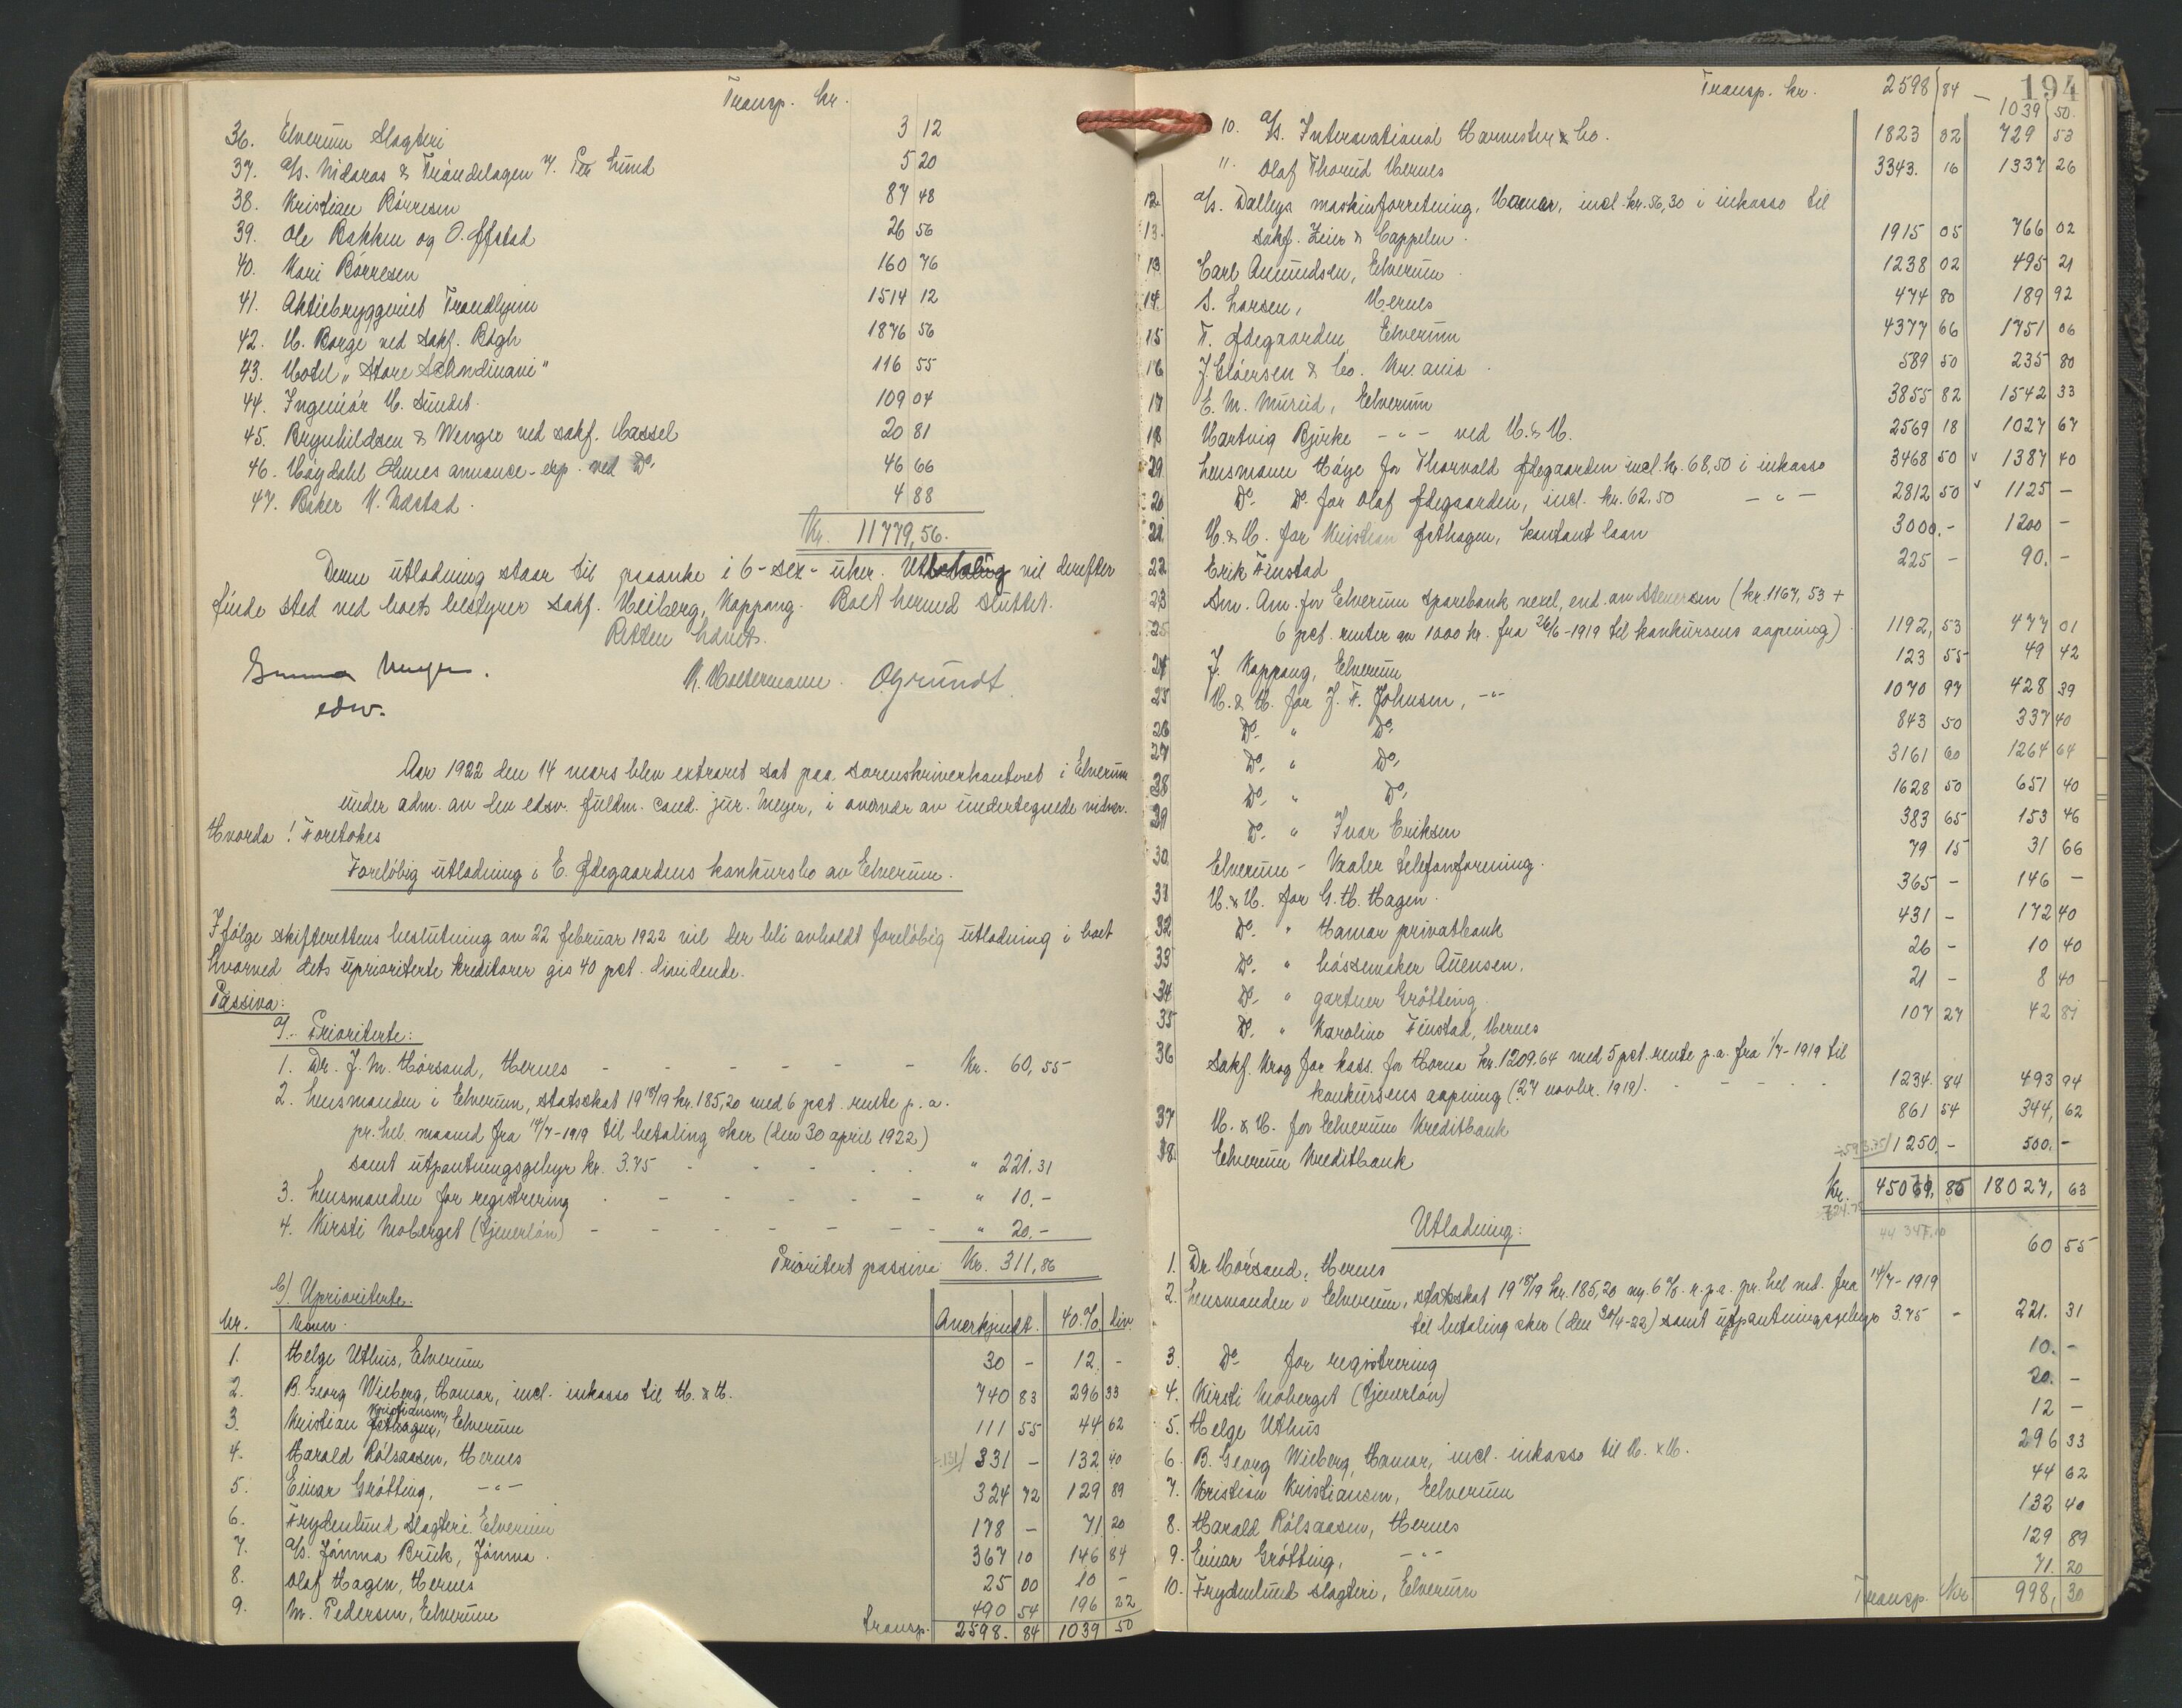 Transp. kr.
36. Elverum Slagteri 3 12
37. A/s. Nidaros & Trøndelagen v. Per Lund 5 20
38. Kristian Børresen 87 48
39. Ole Bakken og O. Øfstad 26 56
40. Kari Børresen 160 76
41. Aktiebryggeriet Trondhjem 1514 12
42. H. Borge ved sakf. Bøgh 1876 56
43. Hotel „Store Schandinavi" 116 55
44. Ingeniør H. Sundet. 109 04
45. Brynhildsen & Wenger ved sakf. Hassel 20 81
46. Høydahl Ohmes annonce-exp. ved Do. 46 66
47. Baker N. Udstad. 4 88
Kr. 11779,56.
Denne utlodning staar til paaanke i 6 - sex - uker. Utbetaling vil derefter
finde sted ved boets bestyrer sakf. Heiberg, Koppang. Boet hermed sluttet.
Retten hævet.
Gunnar Meyer. N. Holtermann. O. Grundt.
edsv.
Aar 1922 den 14 mars blev extraret sat paa sorenskriverkontoret i Elverum
under adm. av den edsv. fuldm. cand. jur. Meyer, i overvær av undertegnede vidner.
Hvorda! Foretokes
Foreløbig utlodning i E. Ødegaardens konkursbo av Elverum.
Ifølge skifterettens beslutning av 22 februar 1922 vil der bli avholdt foreløbig utlodning i boet
hvorved dets uprioriterte kreditorer gis 40 pct. dividende.
Passiva:
a/. Prioriterte:
1. Dr. J. M. Hørsand, Hernes - - - - - - Kr. 60,55
2. Lensmanden i Elverum, statsskat 1918/19 kr. 185,20 med 6 pct. rente p. a.
pr. hel maaned fra 14/7-1919 til betaling sker (den 30 april 1922)
samt utpantningsgebyr kr. 3.75 - - - - " 221.31
3. Lensmanden for registrering - - - - - " 10.-
4. Kirsti Moberget (tjenerløn) - - - - - - " 20.-
Prioritert passiva Kr. 311,86
b/. Uprioriterte.
Nr. Navn. Anerkjendt. 40 % div.
1. Helge Uthus, Elverum 30 - 12 -
2. B. Georg Wiiberg, Hamar, incl. inkasso til H. & H. 740 83 296 33
Kristiansen,
3. Kristian Føthagen, Elverum 111 55 44 62
4. Harald Rølsaasen, Hernes 331 - 132 40
5. Einar Grøtting, -"- 324 72 129 89
6. Frydenlund Slagteri Elverum 178 - 71 20
7. A/s. Jømna Bruk, Jømna. 367 10 146 84
8. Olaf Hagen, Hernes 25 00 10 -
9. M. Pedersen, Elverum 490 54 196 22
transp. 2598. 84 1039 50
194
Transp. kr. 2598 84 - 1039 50.
10. A/s. International Harvester & Co. 1823 02 729 53
11. Olaf Thorud Hernes 3343. 16 1337 26
12 A/s. Dalleys maskinforretning, Hamar, incl. kr. 56,30 i inkasso til
13. sakf. Zeier & Cappelen. 1915 05 766 02
13 Carl Amundsen, Elverum. 1238 02 495 21
14. S. Larsen, Hernes 474 80 189 92
15 F. Ødegaarden, Elverum 4377 66 1751 06
16 J. Cloersen & Co. Kr.ania. 589 50 235 80
17 E. M. Mureid, Elverum 3855 82 1542 33
18 Hartvig Bjørke -"- ved H. & H. 2569 18 1027 67
29 Lensmann Høye for Thorvald Ødegaarden incl. kr. 68,50 i inkasso 3468 50 v 1387 40
20 Do. Do. for Olaf Ødegaarden, incl. kr. 62.50 -"- 2812 50 v 1125 -
21 H. & H. for Kristian Føthagen, kontant laan 3000.- 1200 -
22 Erik Finstad 225 - 90. -
23 Sm. Am. for Elverum Sparebank vexel, end. av Steversen (kr. 1167,53 +
25 6 pct. renter av 1000 kr. fra 26/6-1919 til konkursens aapning). 1192, 53 477 01
24 J. Koppang, Elverum 123 55 49 42
25 H. & H. for J. F. Johnsen, -"- 1070 97 428 39
26 Do. " Do. 843 50 337 40
27 Do. " Do. 3161 60 1264 64
28 Do. " Do. 1628 50 651 40
29 Do. " Ivar Eriksen 383 65 153 46
30. Elverum - Vaaler telefonforening. 79 15 31 66
31 H. & H. for G. H. Hagen. 365 - 146 -
32 Do. " Hamar privatbank 431 - 172 40
33 Do. " Låssemaker Auensen. 26 - 10 40
34 Do. " gartner Grøtting. 21 - 8 40
35 Do. " Karoline Finstad, Hernes 107 27 42 81
36 Sakf. Krog for kass. for Horna kr. 1209.64 med 5 pct. rente p.a. fra 1/7-1919 til
konkursens aapning (27 novbr. 1919). - - - - 1234. 84 493 94
37 H. & H. for Elverum Kreditbank 861 54 344, 62
38. Elverum Kreditbank 1250. - 500. -
kr. 45069, 86 18027, 63
44 347,10
Utlodning:
1. Dr. Hørsand, Hernes 60 55
2. Lensmanden i Elverum, statsskat 1918/19 kr. 185,20 m. 6 % r. p. a. pr. hel md. fra 14/7-1919
til betaling sker (den 30/4-22) samt utpantningsgebyr 3.75 - 221. 31
3. Do for registrering 10. -
4. Kirsti Moberget (tjenerløn) 20. -
5. Helge Uthus 12 -
6. B. Georg Wiiberg, Hamar, incl. inkasso til H. & H. 296 33
7. Kristian Kristiansen, Elverum 44 62
8. Harald Rølsaasen, Hernes 132 40
9. Einar Grøtting, -"- 129 89
10. Frydenlund slagteri, Elverum 71. 20
Transp. Kr. 998, 30